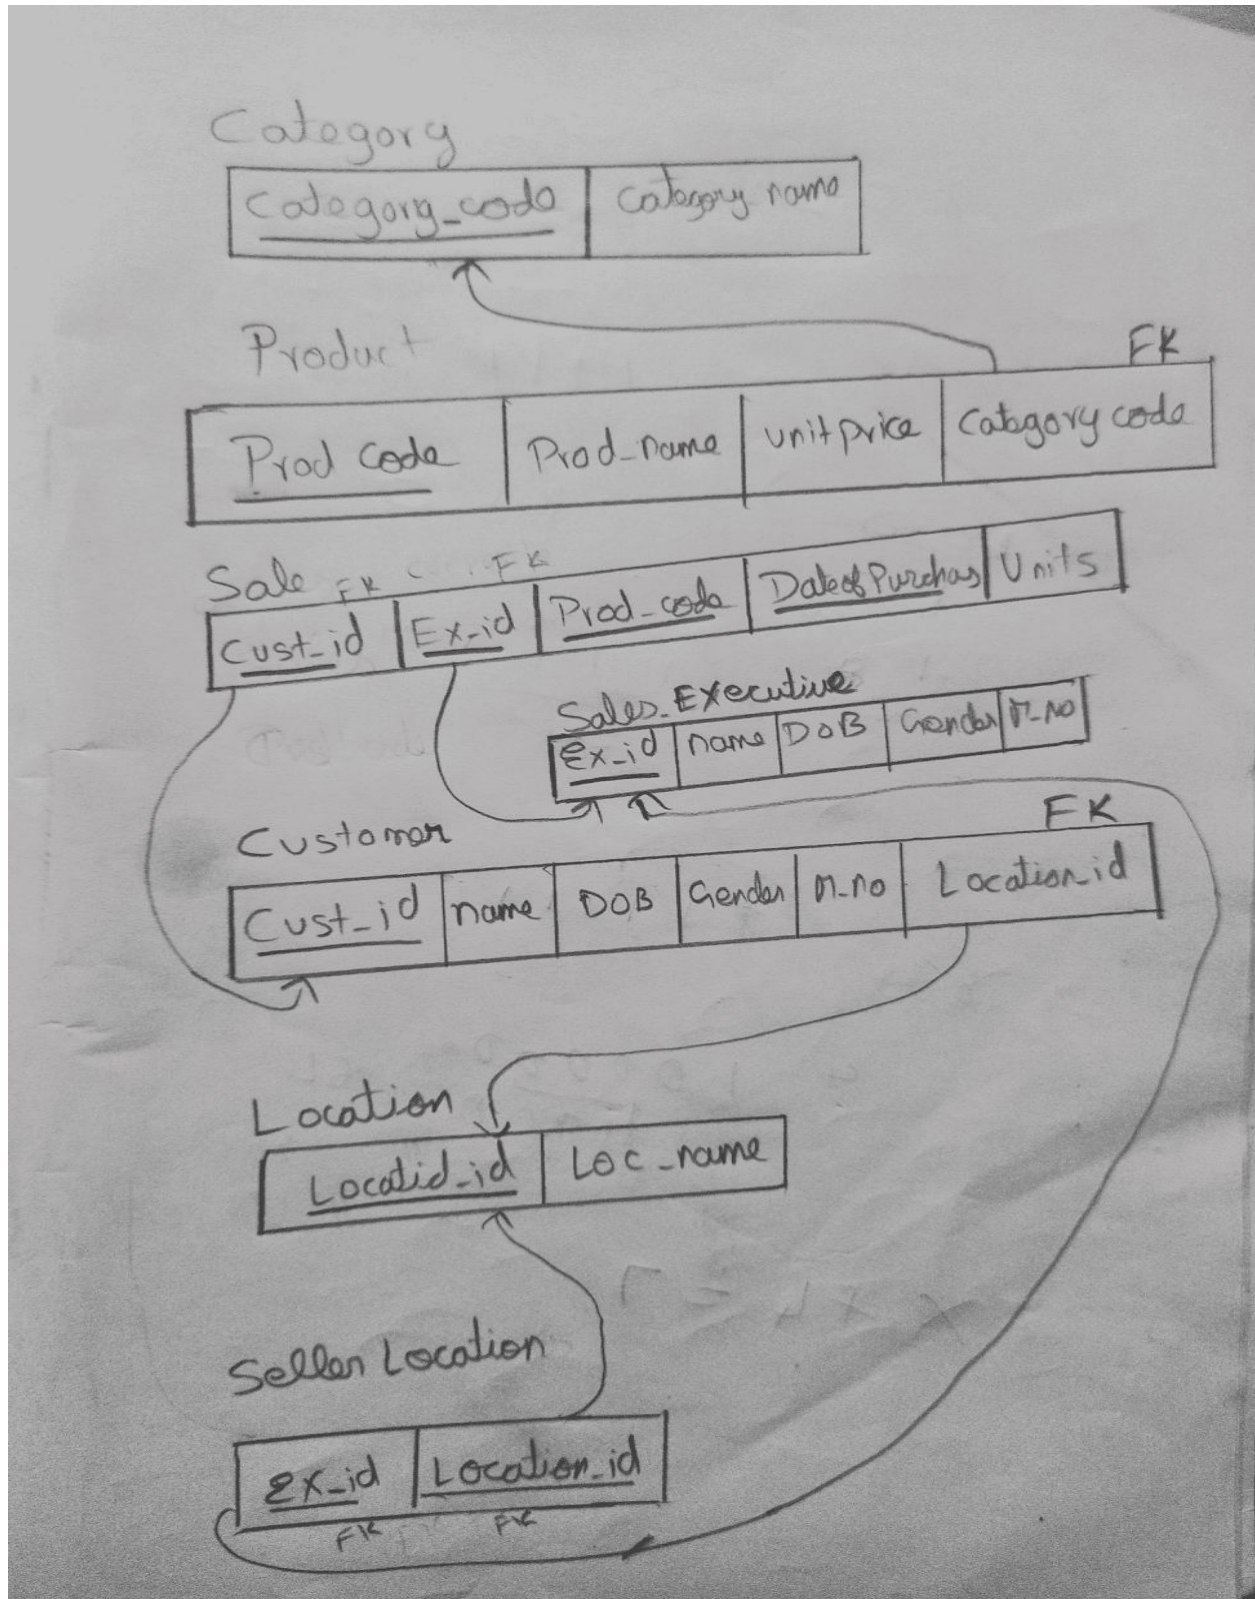 Category
Category_code Category name
Product
FK
Prod code Prod_name unitprice Category code
Sale FK FK
Cust_id Ex_id Prod_code Date of Purchas Units
Sales_Executive
Ex_id name DOB Gender M_No
Customer
FK
Cust_id name DOB Gender M_No Location_id
Location
Locatid_id Loc_name
Seller Location
Ex_id Location_id
FK FK